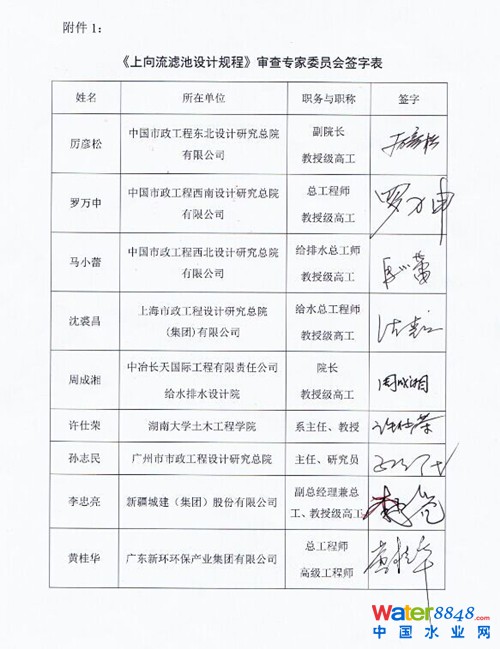 附件 1：
《上向流滤池设计规程》审查专家委员会签字表
姓名 所在单位 职务与职称 签字
厉彦松 中国市政工程东北设计研究总院 副院长 厉彦松
有限公司 教授级高工
罗万申 中国市政工程西南设计研究总院 总工程师 罗万申
有限公司 教授级高工
马小蕾 中国市政工程西北设计研究总院 给排水总工师 马小蕾
有限公司 教授级高工
沈裘昌 上海市政工程设计研究总院 给水总工程师
(集团)有限公司 教授级高工
周成湘 中冶长天国际工程有限责任公司 院长 周成湘
给水排水设计院 教授级高工
许仕荣 湖南大学土木工程学院 系主任、教授 许仕荣
孙志民 广州市市政工程设计研究总院 主任、研究员
李忠亮 新疆城建（集团）股份有限公司 副总经理兼总
工、教授级高工
黄桂华 广东新环环保产业集团有限公司 总工程师 黄桂华
高级工程师
Water8848.com
中国水业网